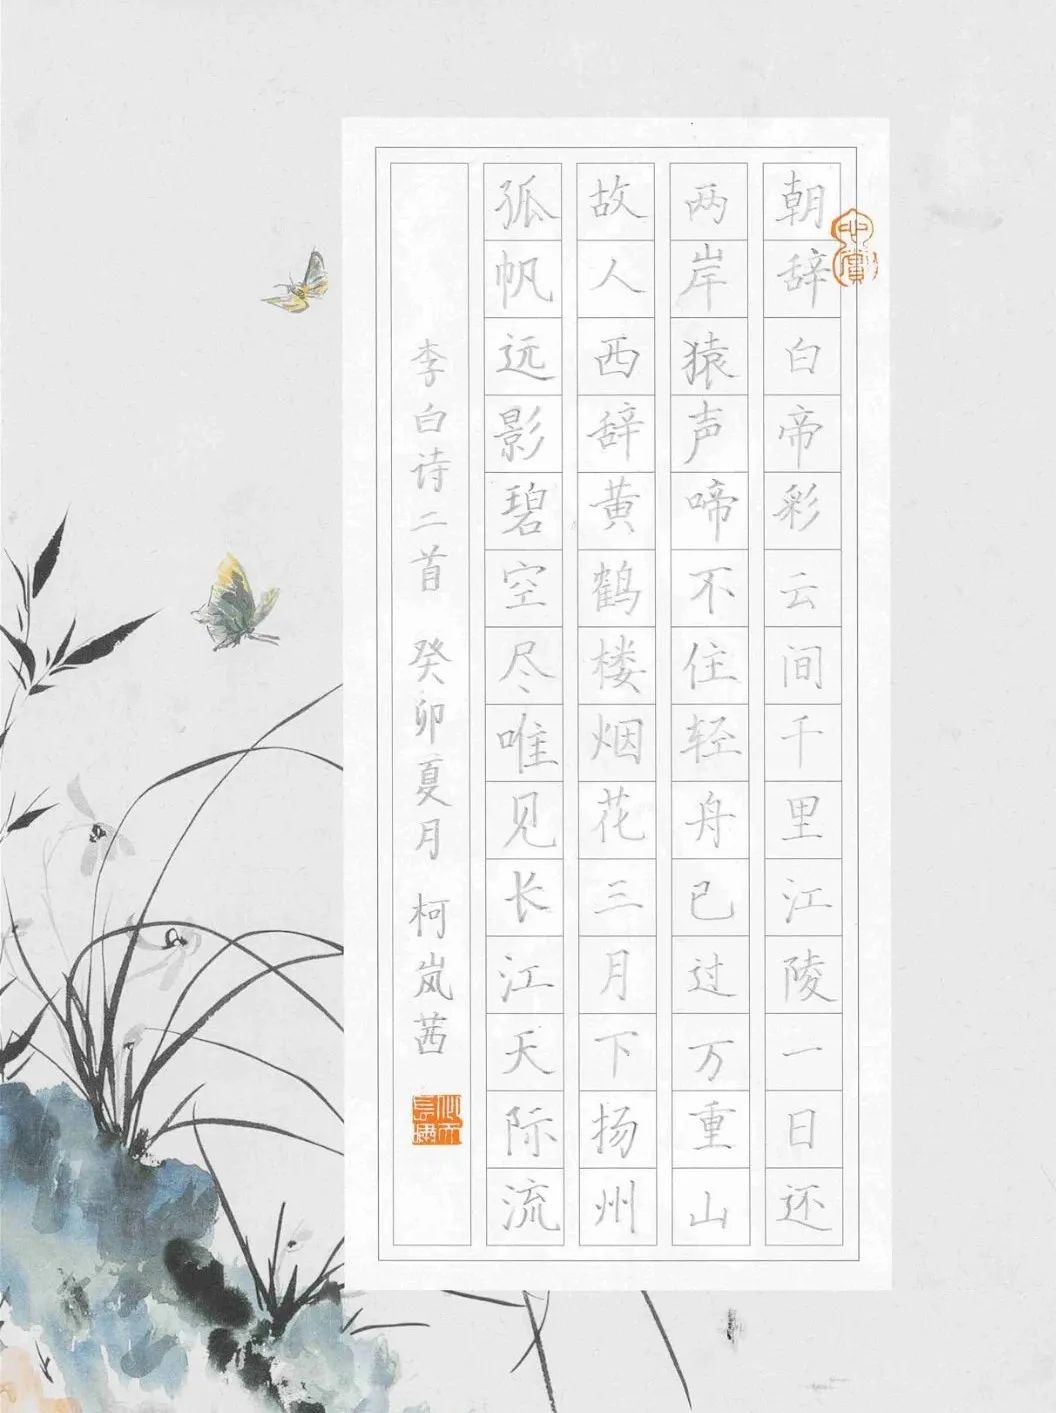 朝辞白帝彩云间千里江陵一日还
两岸猿声啼不住轻舟已过万重山
故人西辞黄鹤楼烟花三月下扬州
孤帆远影碧空尽唯见长江天际流
李白诗二首 癸卯夏月 柯岚茜